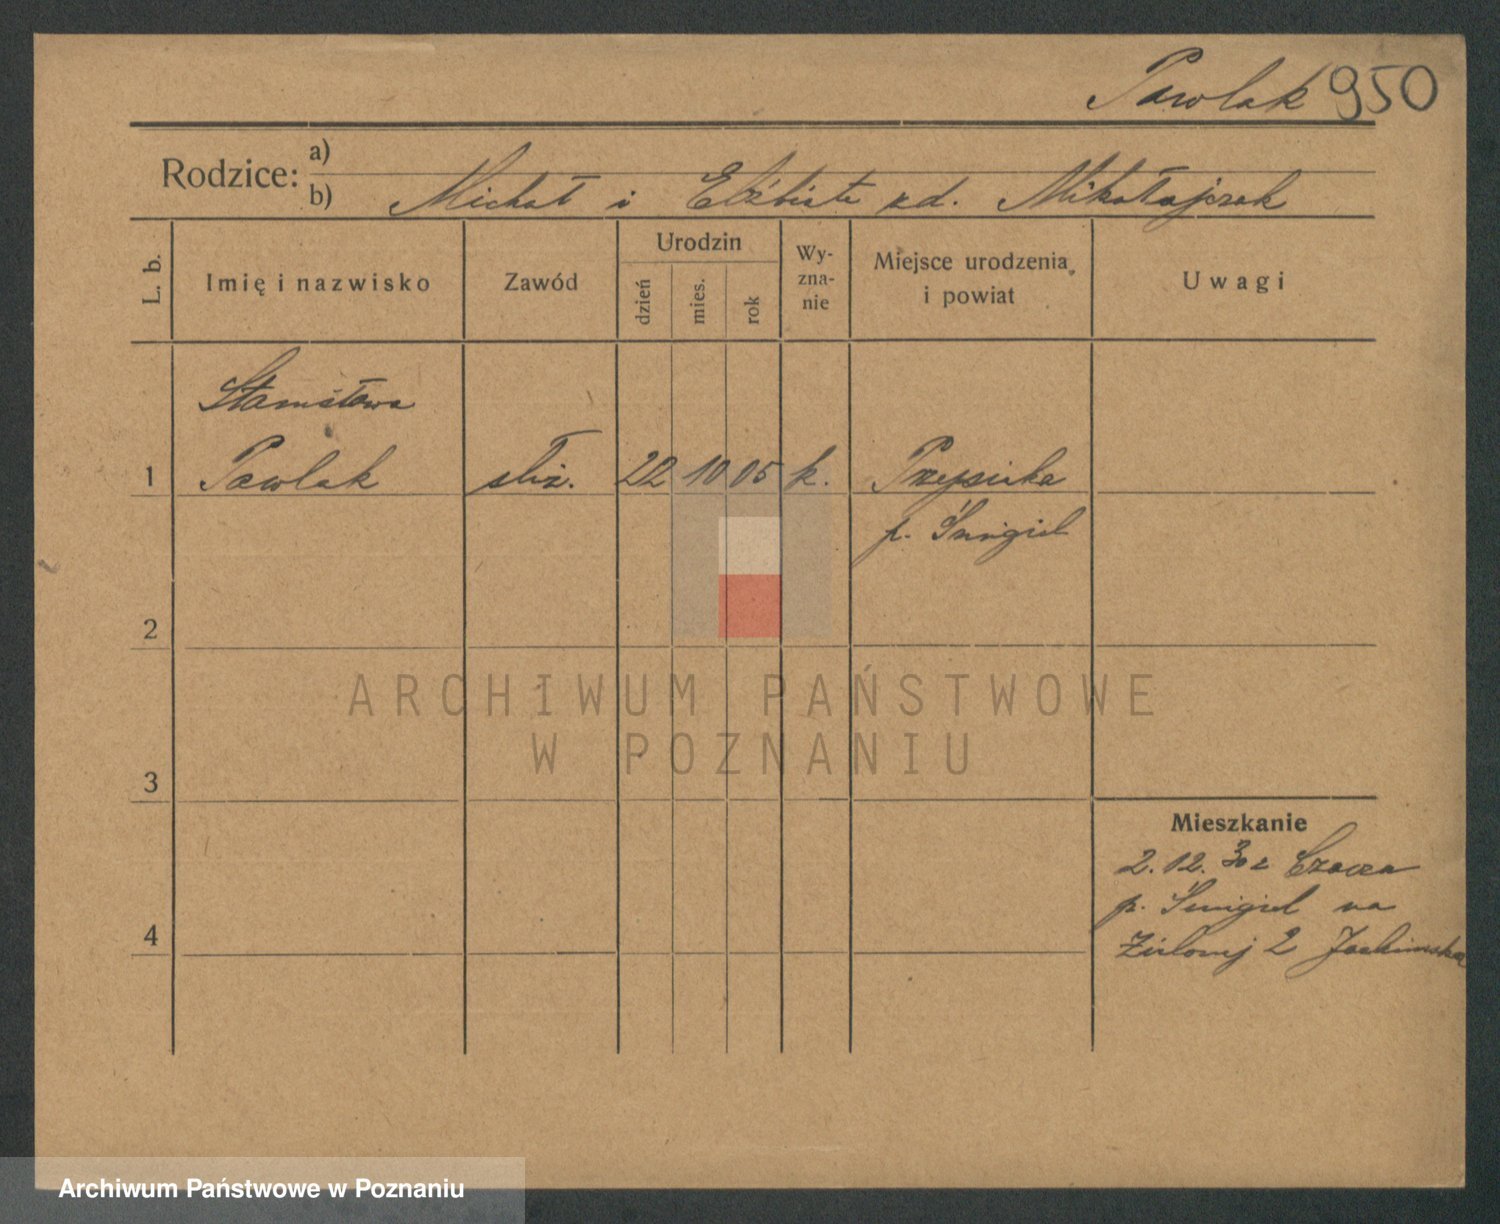 Pawlak 950
Rodzice: a)
b) Michał i Elżbieta zd. Mikołajczak
L. b. Imię i nazwisko Zawód Urodzin dzień mies. rok Wy-zna-nie Miejsce urodzenia i powiat Uwagi
Stanisława
1 Pawlak służ. 22 10 05 k. Przysieka
p. Śmigiel
2
ARCHIWUM PAŃSTWOWE
W POZNANIU
3
Mieszkanie
2. 12. 30 z Czacza
p. Śmigiel na
4 Zielonej 2
Archiwum Państwowe w Poznaniu